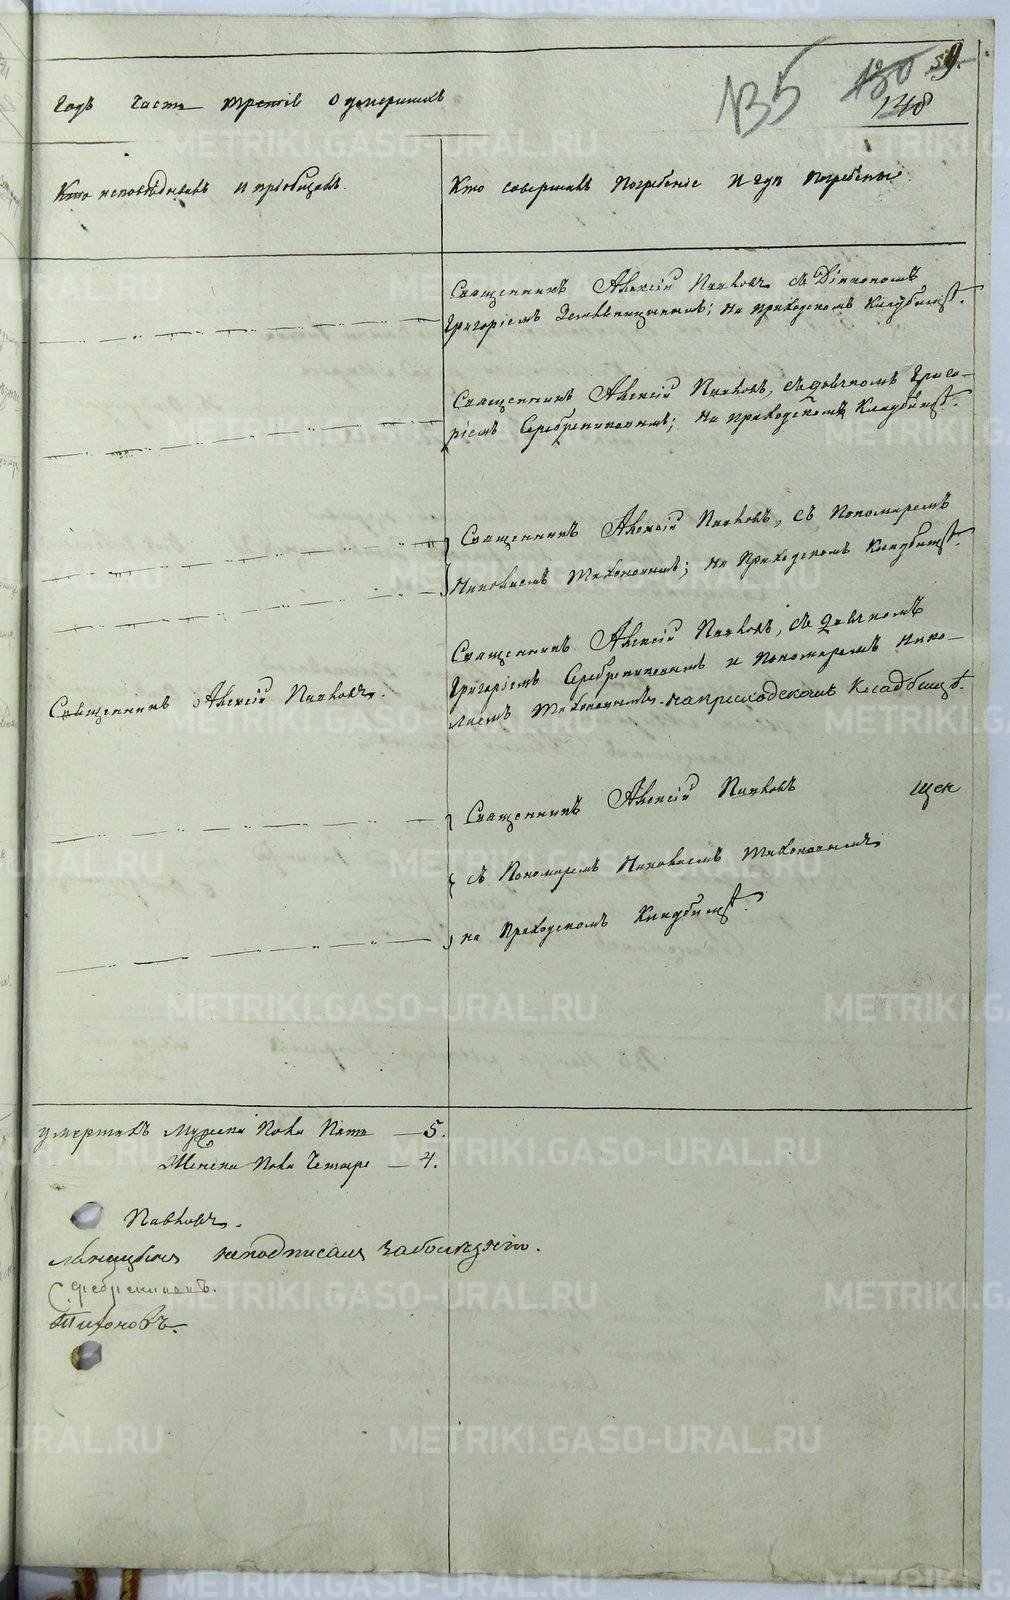 135 130 59.
138
Годъ часть третія о умершихъ
Кто исповѣдывалъ и пріобщалъ.
Кто совершалъ погребеніе и гдѣ погребены
Священникъ Алексій Павловъ съ Діакономъ
Григоріемъ на приходскомъ кладбищѣ.
Священникъ Алексій Павловъ, съ дьячкомъ Григо-
ріемъ Серебрениковымъ; на приходскомъ кладбищѣ.
Священникъ Алексій Павловъ, съ Пономаремъ
Николаемъ Тихоновымъ; на приходскомъ кладбищѣ.
Священникъ Алексій Павловъ.
Священникъ Алексій Павловъ, съ дьячкомъ
Григоріемъ Серебрениковымъ и Пономаремъ Нико-
лаемъ Тихоновымъ. на приходскомъ кладбищѣ.
Священникъ Алексій Павловъ
съ Пономаремъ Николаемъ Тихоновымъ
на Приходскомъ кладбищѣ.
умершихъ Мужеска пола пять — 5.
Женска пола четыре — 4.
Павловъ.
неподписался заболезнію.
Серебрениковъ.
Тихоновъ.
METRIKI.GASO-URAL.RU